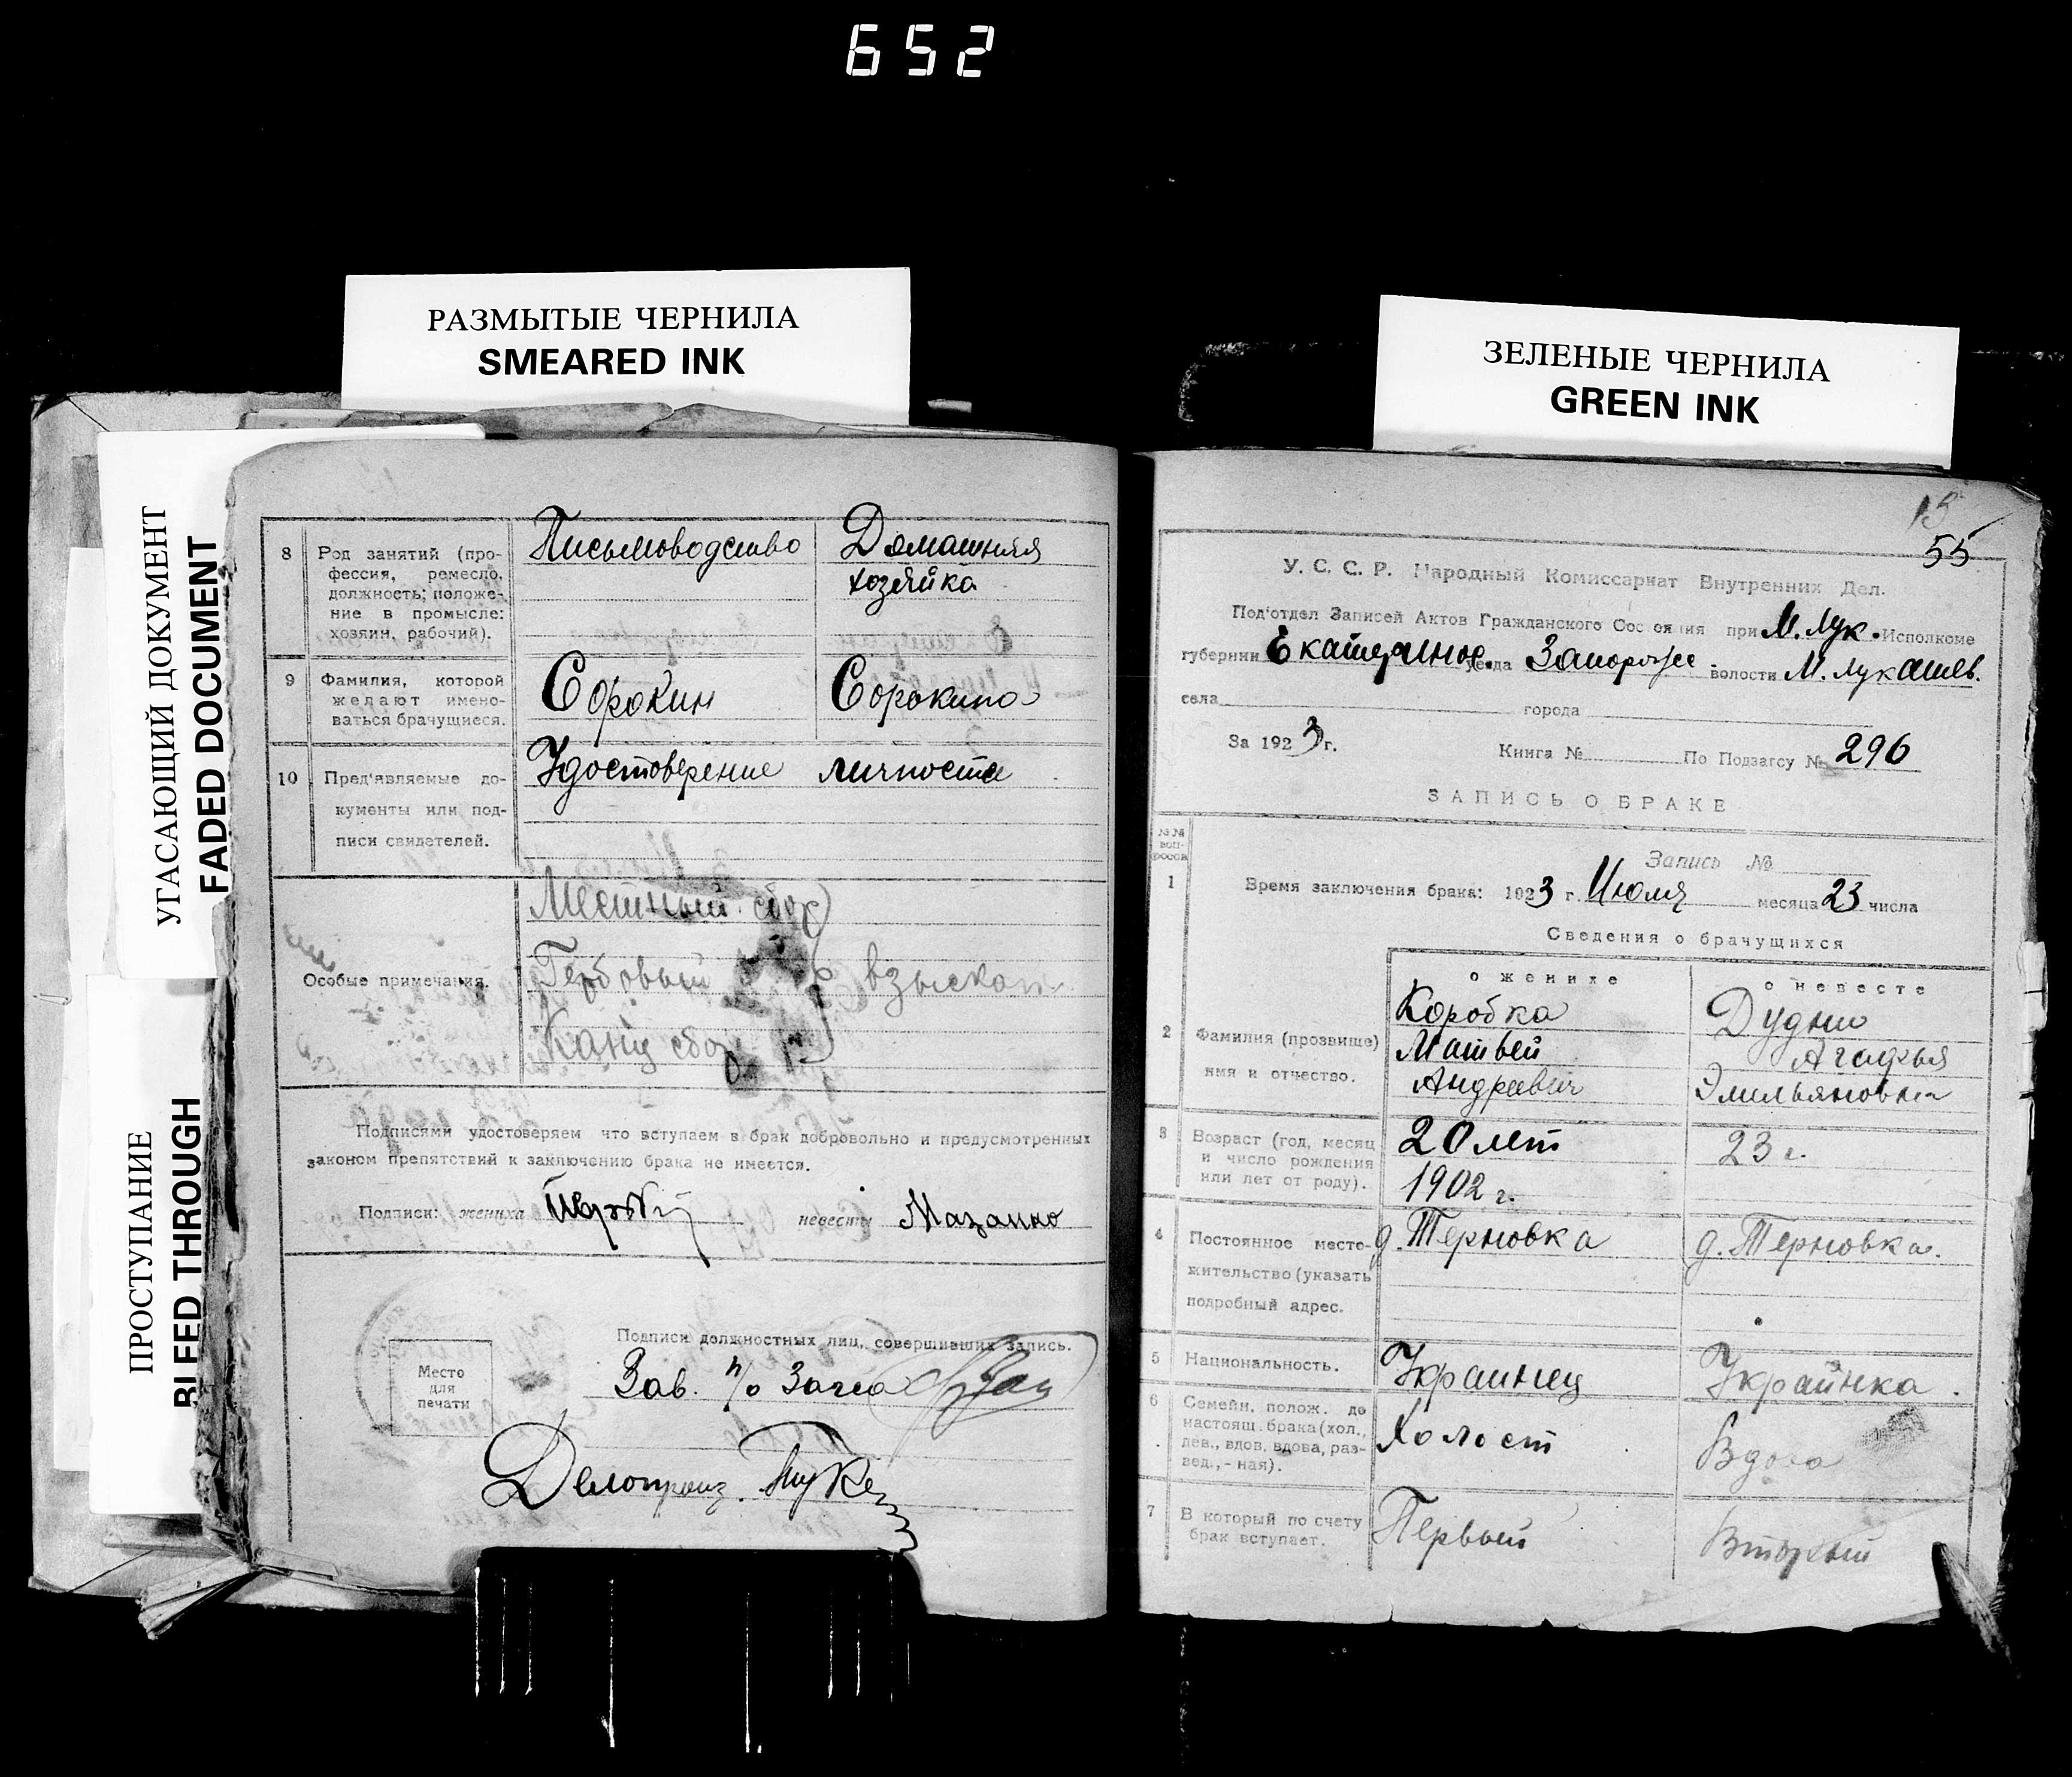 652
РАЗМЫТЫЕ ЧЕРНИЛА
SMEARED INK
ЗЕЛЕНЫЕ ЧЕРНИЛА
GREEN INK
УГАСАЮЩИЙ ДОКУМЕНТ
FADED DOCUMENT
ПРОСТУПАНИЕ
BLEED THROUGH
8 Род занятий (про-
фессия, ремесло,
должность; положе-
ние в промысле:
хозяин, рабочий).
Письмоводство
Домашняя
хозяйка
9 Фамилия, которой
желают имено-
ваться брачущиеся.
Сорокин
Сорокина
10 Пред'являемые до-
кументы или под-
писи свидетелей.
Удостоверение личности
Особые примечания.
Местный сбор
Гербовый взыскан
Канц сбор
Подписями удостоверяем что вступаем в брак добровольно и предусмотренных
законом препятствий к заключению брака не имеется.
Подписи: жениха невесты
Место
для
печати
Подписи должностных лиц, совершивших запись.
Зав. п/о Загса
Делопроиз.
15
55
У. С. С. Р. Народный Комиссариат Внутренних Дел.
Под'отдел Записей Актов Гражданского Состояния при М. Лук. Исполкоме
губернии Екатеринос. уезда Запорожс. волости М. Лукашев.
села города
За 1923 г. Книга № По Подзагсу № 296
ЗАПИСЬ О БРАКЕ
№№
воп-
росов
Запись №
1 Время заключения брака: 1923 г. Июля месяца 23 числа
Сведения о брачущихся
о женихе
о невесте
2 Фамилия (прозвище)
имя и отчество.
Коробка
Матвей
Андреевич
Дудни
Агафья
Эмильяновна
3 Возраст (год, месяц
и число рождения
или лет от роду).
20 лет
1902 г.
23 г.
4 Постоянное место-
жительство (указать
подробный адрес.
д. Терновка
д. Терновка.
5 Национальность.
Украинец
Украинка.
6 Семейн. полож. до
настоящ. брака (хол.,
дев., вдов, вдова, раз-
вед., - ная).
Холост
Вдова
7 В который по счету
брак вступает.
Первый
Вторый